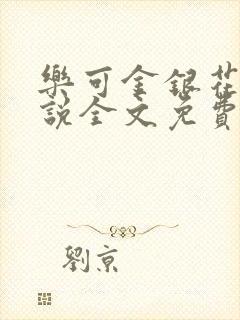 樂可金銀花
說全文免費
劉京